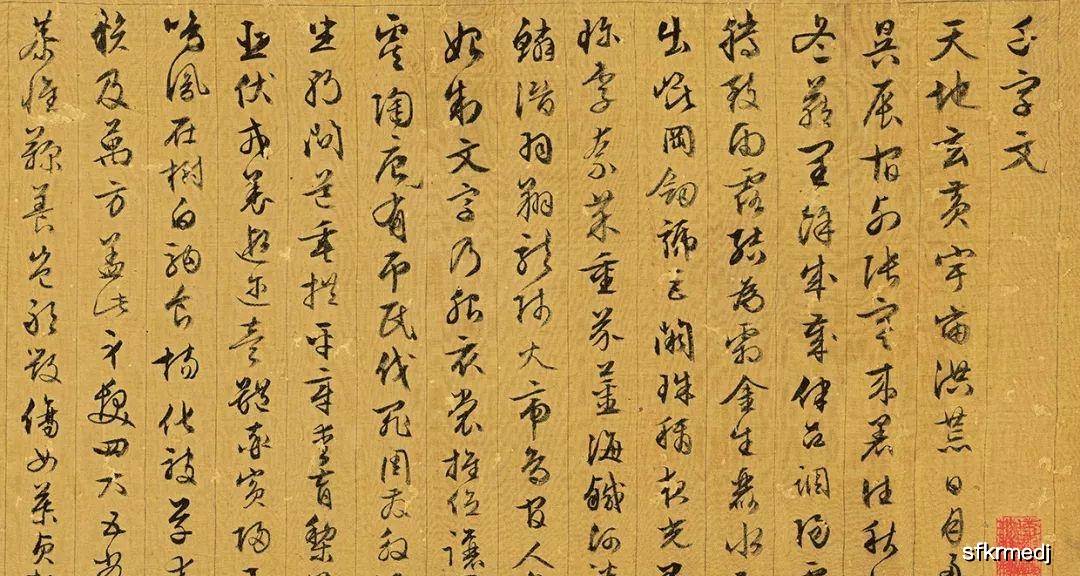 千字文
天地玄黄宇宙洪荒日月
昃辰宿列張寒来暑往秋
冬藏閏餘成歲律吕調陽
騰致雨露結為霜金生麗水
出崑岡劍號巨闕珠稱夜光
珍李柰菜重芥薑海鹹河
鱗潛羽翔龍師火帝鳥官人
始制文字乃服衣裳推位讓
虞陶唐有弔民伐罪周發殷
坐朝問道垂拱平章愛育黎
臣伏戎羌遐邇壹體率賓歸
鳴鳳在樹白駒食場化被草
賴及萬方蓋此身髮四大五常
恭惟鞠養豈敢毀傷女慕貞
sfkrmedj